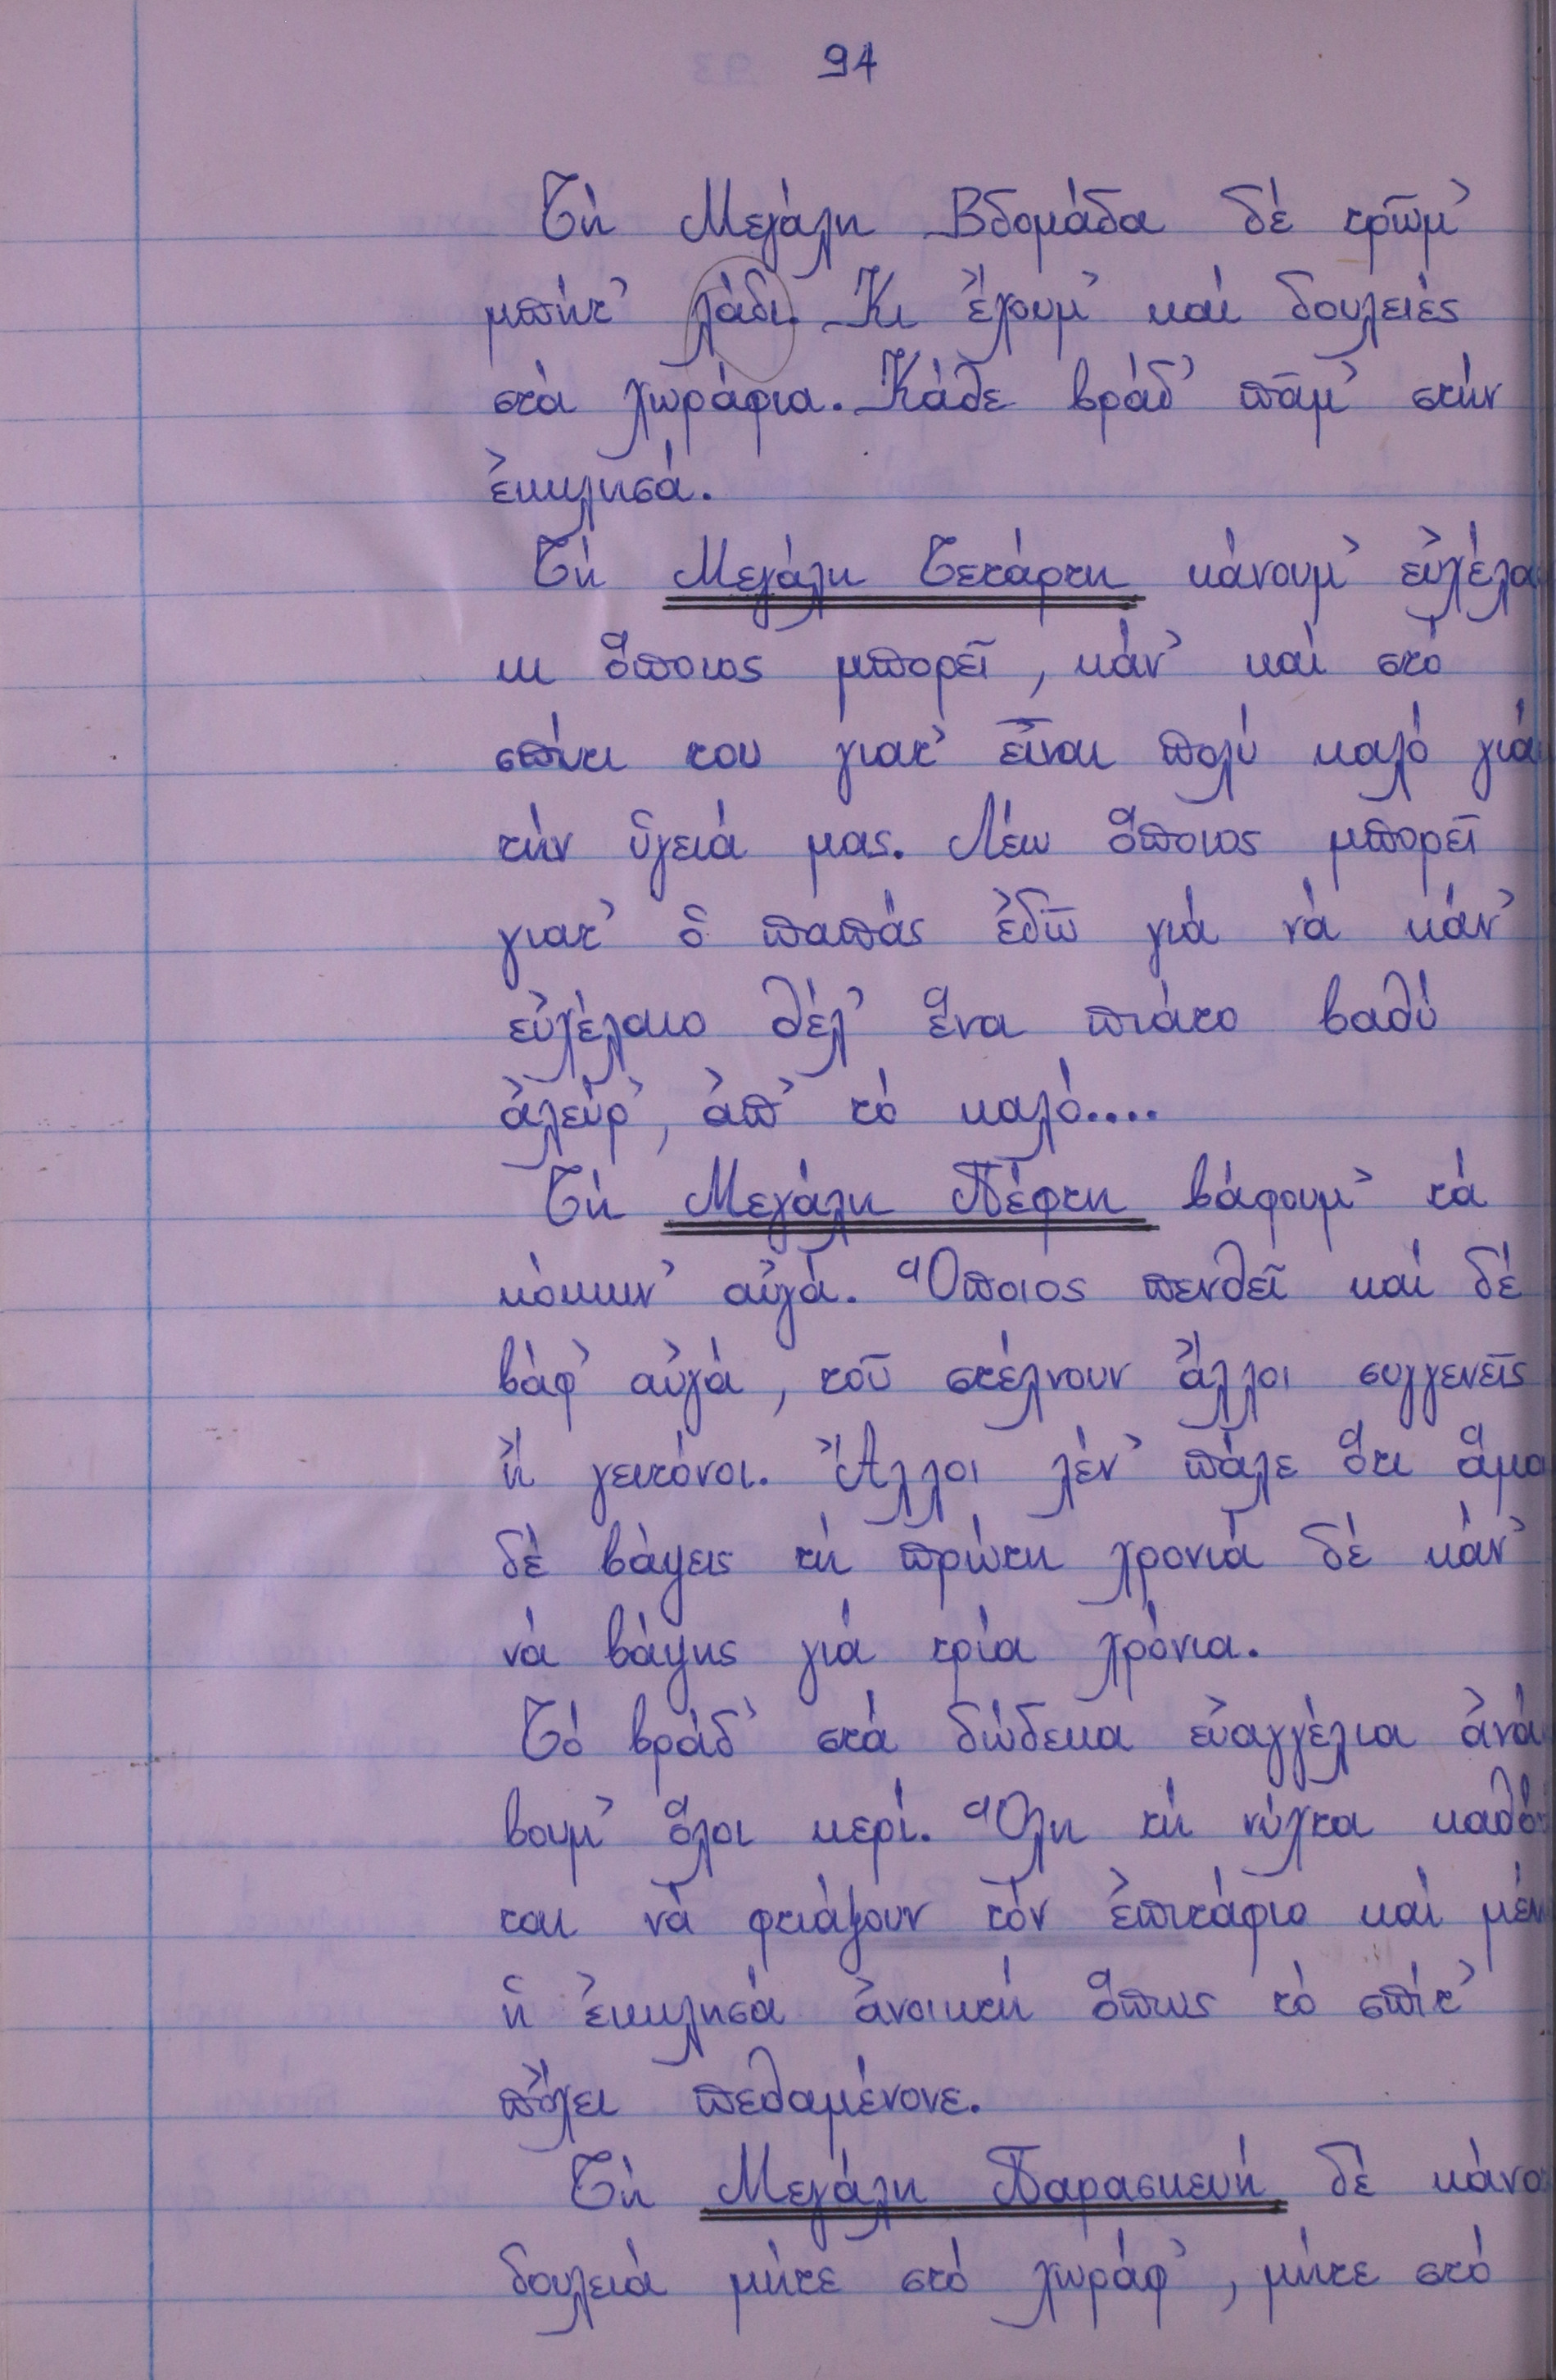 94
Τή Μεγάλη Βδομάδα δέ τρῶμ᾿
μπήτ᾿ λάδι. Κι ἔχουμ᾿ καί δουλειές
στά χωράφια. Κάθε βράδ᾿ πᾶμ᾿ στήν
ἐκκλησά.
Τή Μεγάλη Τετάρτη κάνουμ᾿ εὐχέλα
κι ὅποιος μπορεῖ, κάν᾿ καί στό
σπίτι του γιατ᾿ εἶναι πολύ καλό γιά
τήν ὑγειά μας. Λέω ὅποιος μπορεῖ
γιατ᾿ ὁ παπάς ἐδῶ γιά νά κάν᾿
εὐχέλαιο θέλ᾿ ἕνα πιάτο βαθύ
ἀλεύρ᾿, ἀπ᾿ τό καλό....
Τή Μεγάλη Πέφτη βάφουμ᾿ τά
κόκκιν᾿ αὐγά. Ὅποιος πενθεῖ καί δέ
βάφ᾿ αὐγά, τοῦ στέλνουν ἄλλοι συγγενεῖς
ἤ γειτόνοι. Ἄλλοι λέν᾿ πάλε ὅτι ἅμα
δέ βάψεις τή πρώτη χρονιά δέ κάν᾿
νά βάψης γιά τρία χρόνια.
Τό βράδ᾿ στά δώδεκα εὐαγγέλια ἀνά
βουμ᾿ ὅλοι κερί. Ὅλη τή νύχτα καθό
ται νά φτιάξουν τόν ἐπιτάφιο καί μέν
ἡ ἐκκλησά ἀνοικτή ὅπως τό σπίτ᾿
πὄχει πεθαμένονε.
Τή Μεγάλη Παρασκευή δέ κάνο
δουλειά μήτε στό χωράφ᾿, μήτε στό